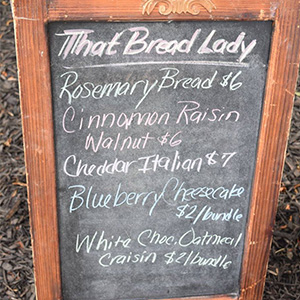 That Bread Lady
Rosemary Bread $6
Cinnamon Raisin
Walnut $6
Cheddar Italian $7
Blueberry Cheesecake
$2/bundle
White Choc. Oatmeal
Craisin $2/bundle